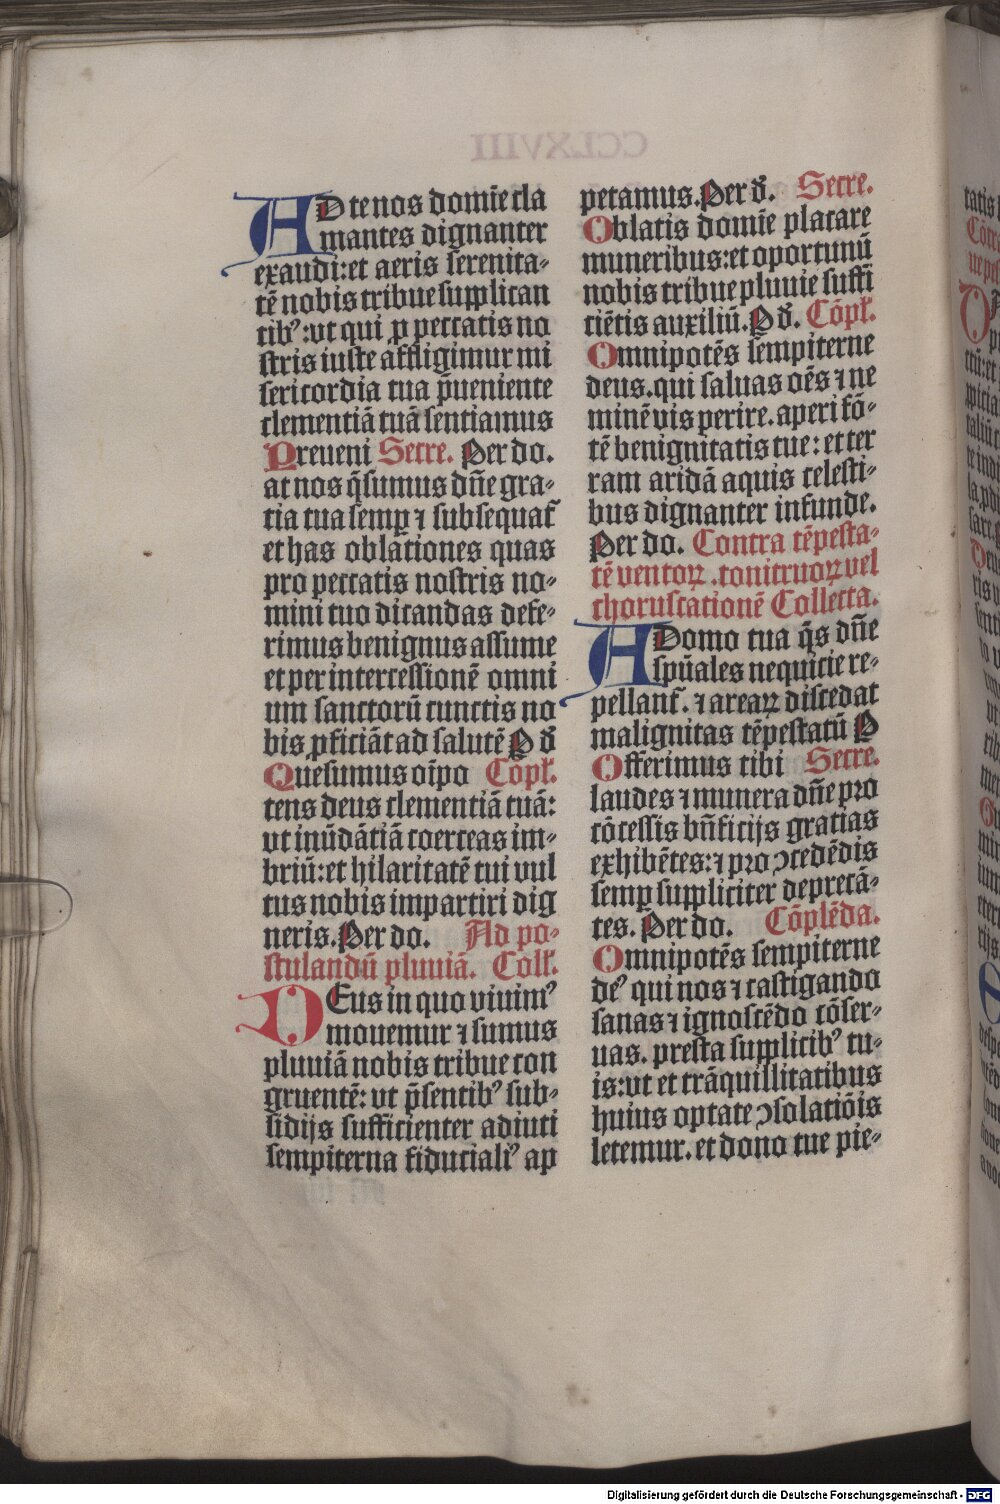 AD te nos domīe cla
mantes dignanter
exaudi: et aeris serenita-
tē nobis tribue supplican
tibꝰ: vt qui ꝓ peccatis no
stris iuste affligimur mi
sericordia tua p̄ueniente
clementiā tuā sentiamus
Preueni Secre. Per do.
at nos q̄sumus dn̄e gra-
tia tua semꝑ ⁊ subsequat᷑
et has oblationes quas
pro peccatis nostris no-
mini tuo dicandas defe-
rimus benignus assume
et per intercessionē omni
um sanctorū cunctis no
bis ꝓficiāt ad salutē P d̄
Quesumus oīpo Cōpl̄.
tens deus clementiā tuā:
vt inūdātiā coerceas im-
briū: et hilaritatē tui vul
tus nobis impartiri dig
neris. Per do. Ad po-
stulandū pluuiā. Coll̄.
DEus in quo viuimꝰ
mouemur ⁊ sumus
pluuiā nobis tribue con
gruentē: vt p̄sentibꝰ sub-
sidijs sufficienter adiuti
sempiterna fiducialiꝰ ap
petamus. Per d̄. Secre.
Oblatis domīe placare
muneribus: et oportunū
nobis tribue pluuie suffi
ciētis auxiliū. P d̄. Cōpl̄.
Omnipotēs sempiterne
deus. qui saluas oēs ⁊ ne
minē vis perire. aperi fō-
tē benignitatis tue: et ter
ram aridā aquis celesti-
bus dignanter infunde.
Per do. Contra tēpesta-
tē ventoꝝ. tonitruoꝝ vel
choruscationē Collecta.
A Domo tua q̄s dn̄e
spūales nequicie re-
pellant᷑. ⁊ areaꝝ discedat
malignitas tēpestatū P
Offerimus tibi Secre.
laudes ⁊ munera dn̄e pro
cōcessis bn̄ficijs gratias
exhibētes: ⁊ pro ↄcedēdis
semꝑ suppliciter deprecā-
tes. Per do. Cōplēda.
Omnipotēs sempiterne
deꝰ qui nos ⁊ castigando
sanas ⁊ ignoscēdo cōser-
uas. presta supplicibꝰ tu-
is: vt et trāquillitatibus
huius optate ↄsolatiōis
letemur. et dono tue pie-
Digitalisierung gefördert durch die Deutsche Forschungsgemeinschaft - DFG